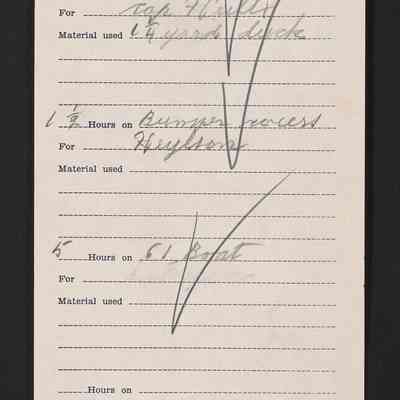 For
Material used 1 1/4 yards duck
1 1/2 Hours on Bumper covers
For Heylson
Material used
5 Hours on 61 Boat
For
Material used
Hours on